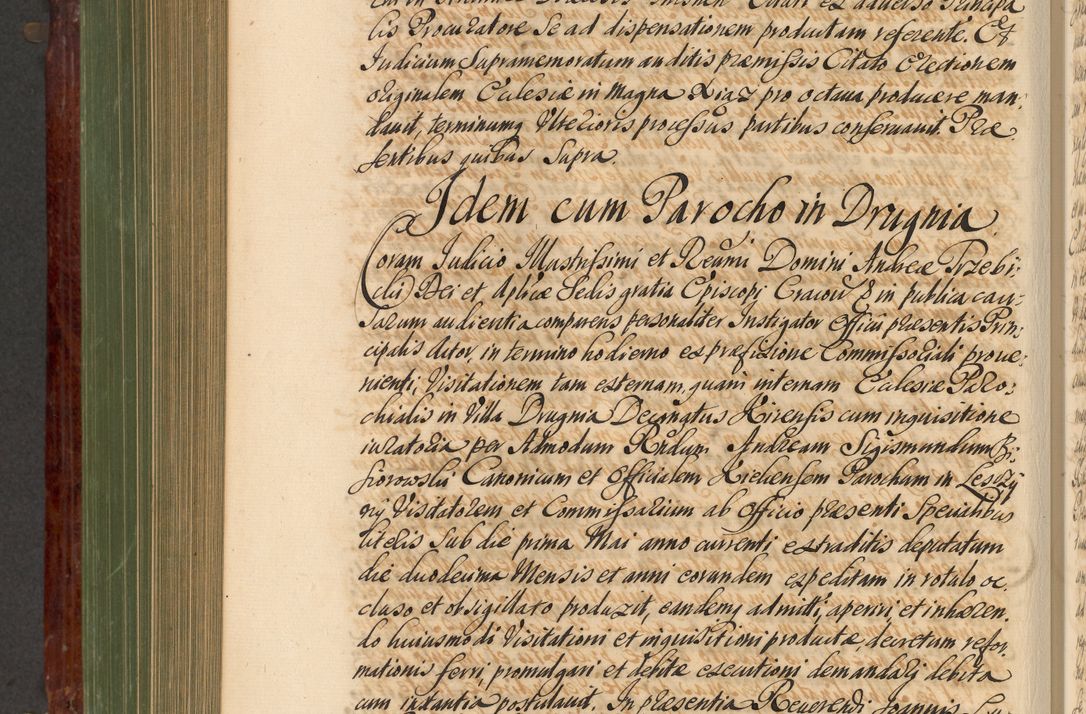 lis Procuratore se ad dispensationem productam referente. Et
Iudicium Supramemoratum auditis præmissis Citato Erectionem
originalem Eclesiæ in Magna Xiaz pro octaua producere man¬
dauit, terminumq Vlterioris processus partibus conseruauit. Præ
sentibus quibus supra.
Idem cum Parocho in Drugnia.
Coram Iudicio Illustrissimi et Reuñi Domini Andreæ Trzebi¬
cki Dei et Aplicæ Sedis gratia Episcopi Cracou in publica cau¬
sarum audientia comparens personaliter Instigator Officii præsentis Prin¬
cipalis Actor, in termino hodierno ex præfixione Commissoriali proue¬
nienti, Visitationem tam externam, quam internam Eclesiæ Paro¬
chialis in Villa Drugnia Decanatus Kirensis cum inquisitione
iuratoria per Admodum Rñdum Andream Sigismundum Bi¬
siorowski Canonicum et Officialem Kielcensem Parochum in Leszczy
nÿ Visitatorem et Commissarium ab officio præsenti Specialibus
literis sub die prima Mai anno currenti extraditis deputatum
die duodecima Mensis et anni eorundem expeditam in rotulo oc
cluso et obsigillato produxit, eandemq admitti, aperiri, et inhæren¬
do huiusmodi Visitationi et inquisitioni productæ, decretum refor
mationis ferri, promulgari et debitæ executioni demandarj debita
cum instantia postulauit. In præsentia Reuerendi Joannis